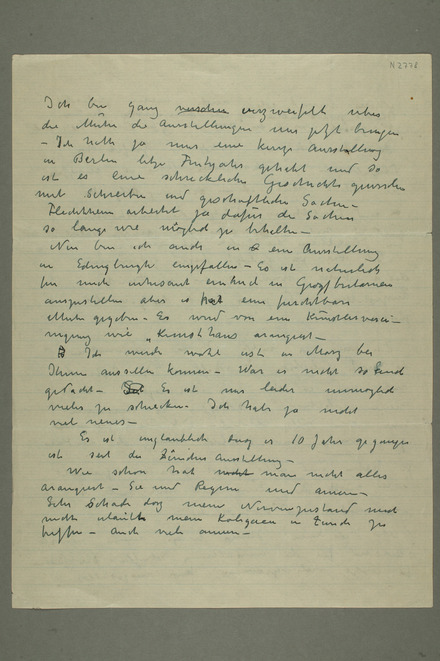 N 2778
Ich bin ganz verzweifelt über
die Mühe die Ausstellungen uns jetzt bringen
– Ich hatte ja nur eine kurze Ausstellung
in Berlin letzte Frühjahr gehabt und so
ist es eine schreckliche Geschichte geworden
mit Schreiben und geschäftlichen Sachen –
Flechtheim arbeitet ja dafür die Sachen
so lange wie möglich zu behalten –
Nun bin ich auch in eine Ausstellung
in Edingburgh eingefallen – Es ist natürlich
für mich interesant einmal in Grossbritanien
auszustellen aber es hat eine furchtbare
Mühe gegeben – Es wird von eine Künstlerverei-
nigung wie „Kunsthaus arangiert –
Ich würde wohl erst in Marz bei
Ihnen ausstellen können – War es nicht so
gedacht – Es ist mir leider unmöglich
mehr zu schicken – Ich habe ja nicht
viel neues –
Es ist unglaublich dass es 10 Jahre gegangen
ist seit der Züricher Ausstellung –
Wie schön hat man nicht alles
arangiert – Sie und und andere –
Sehr Schade dass mein Nervenzustand mich
nicht erlaubte mein Kollegen in Zürich zu
treffen – Auch viele andere –